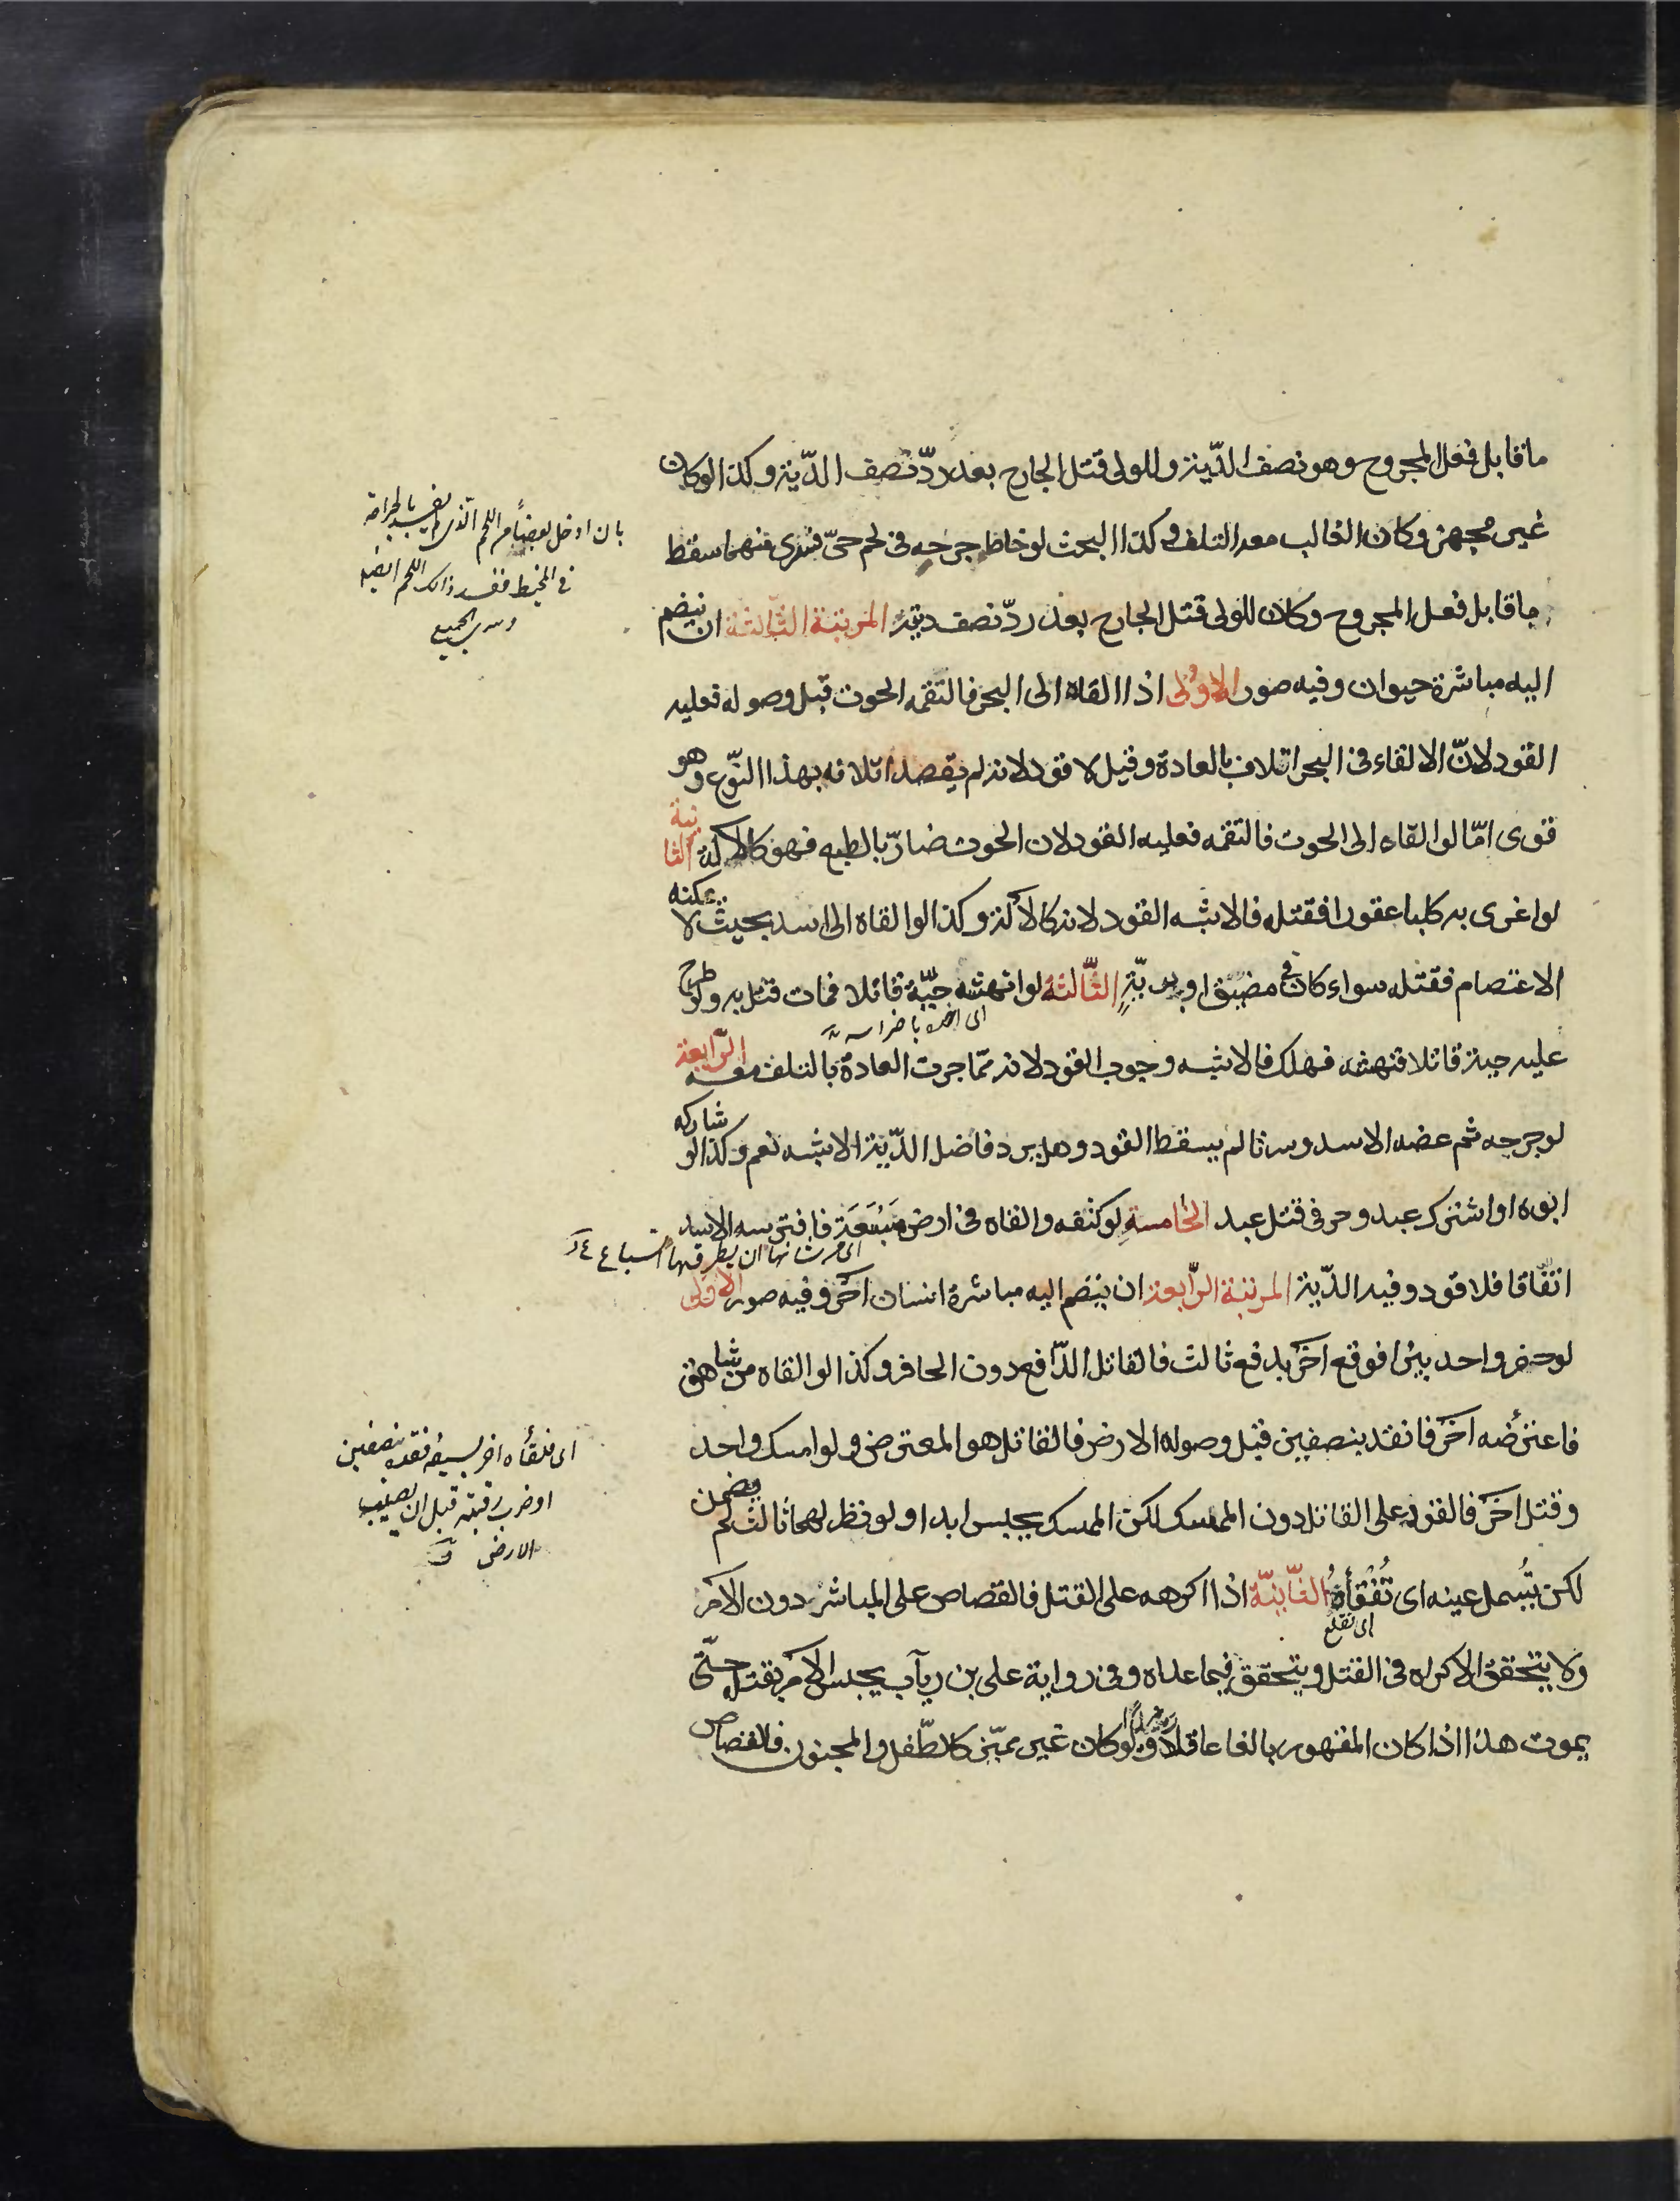 ما قابل فعل المجروح وهو نصف الدّية وللولى قتل الجارح بعد ردّ نصف الدّية وكذا لو كان
غير مجهز وكان الغالب معه التلف وكذا البحث لو خاط جرحه فى لحم حىّ فسرى منهما سقط
ما قابل فعل المجروح وكان للولى قتل الجارح بعد ردّ نصف ديته المرتبة الثّالثة ان ينضم
اليه مباشرة حيوان وفيه صور الاولى اذا القاه الى البحر فالتقمه الحوت قبل وصوله فعليه
القود لانّ الالقاء فى البحر اتلاف بالعادة وقيل لا قود لانه لم يقصد اتلافه بهذا النّوع وهو
قوى امّا لو القاه الى الحوت فالتقمه فعليه القود لان الحوت ضارّ بالطبع فهو كالآلة الثانية
لو اغرى به كلبا عقورا فقتله فالاشبه القود لانه كالآلة وكذا لو القاه الى اسد بحيث لا يمكنه
الاعتصام فقتله سواء كان فى مضيق او برّيّة الثّالثة لو انهشه حيّة قاتلا فمات قتل به ولو طرح
اى اخذه باضراسه
عليه حية قاتلا فنهشه فهلك فالاشبه وجوب القود لانه ممّا جرت العادة بالتلف معه الرّابعة
لو جرحه ثم عضه الاسد وسرتا لم يسقط القود وهل يرد فاضل الدّية الاشبه نعم وكذا لو شاركه
ابوه او اشترك عبد وحر فى قتل عبد الخامسة لو كتفه والقاه فى ارض مَسْبَعَة فافترسه الاسد
اى من شانها ان يطرقها السباع
اتّفاقا فلا قود وفيه الدّية المرتبة الرّابعة ان ينضم اليه مباشرة انسان آخر وفيه صور الاولى
لو حفر واحد بئرا فوقع آخر بدفع ثالث فالقاتل الدّافع دون الحافر وكذا لو القاه من شاهق
فاعترضه آخر فانقد بنصفين قبل وصوله الارض فالقاتل هو المعترض ولو امسك واحد
وقتل آخر فالقود على القاتل دون الممسك لكن الممسك يحبس ابدا ولو نظر لهما ثالث لم يضمن
لكن تُسمل عينه اى تُفْقَأُ الثّانيّة اذا اكرهه على القتل فالقصاص على المباشر دون الآمر
اى تقلع
ولا يتحقق الاكراه فى القتل ويتحقق فيما عداه وفى رواية على بن رياب يحبس الآمر بقتله حتّى
يموت هذا اذا كان المقهور بالغا عاقلا ولو كان غير مميّز كالطّفل والمجنون فالقصاص
بان ادخل بعضاً من اللحم الذى بالجراحة
فى المخيط ففسد ذالك اللحم ايضا
وسرى الجميع
اى فلقاه اخر بسيفه فقده نصفين
او ضرب رقبته قبل ان يصيب
الارض